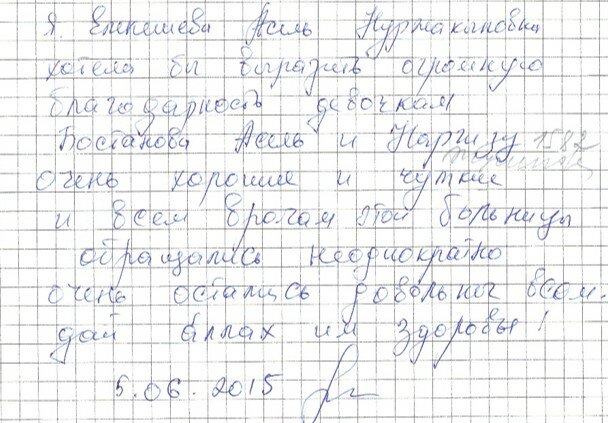 Я. Елкешева Асель Нуржакановна
хотела бы выразить огромную
благодарность девочкам
Бостанова Асель и Наргизу 1587
очень хорошие и чуткие
и всем врачам этой больницы
обращались неоднократно
очень остались довольны всем.
дай аллах им здоровья!
5.06.2015